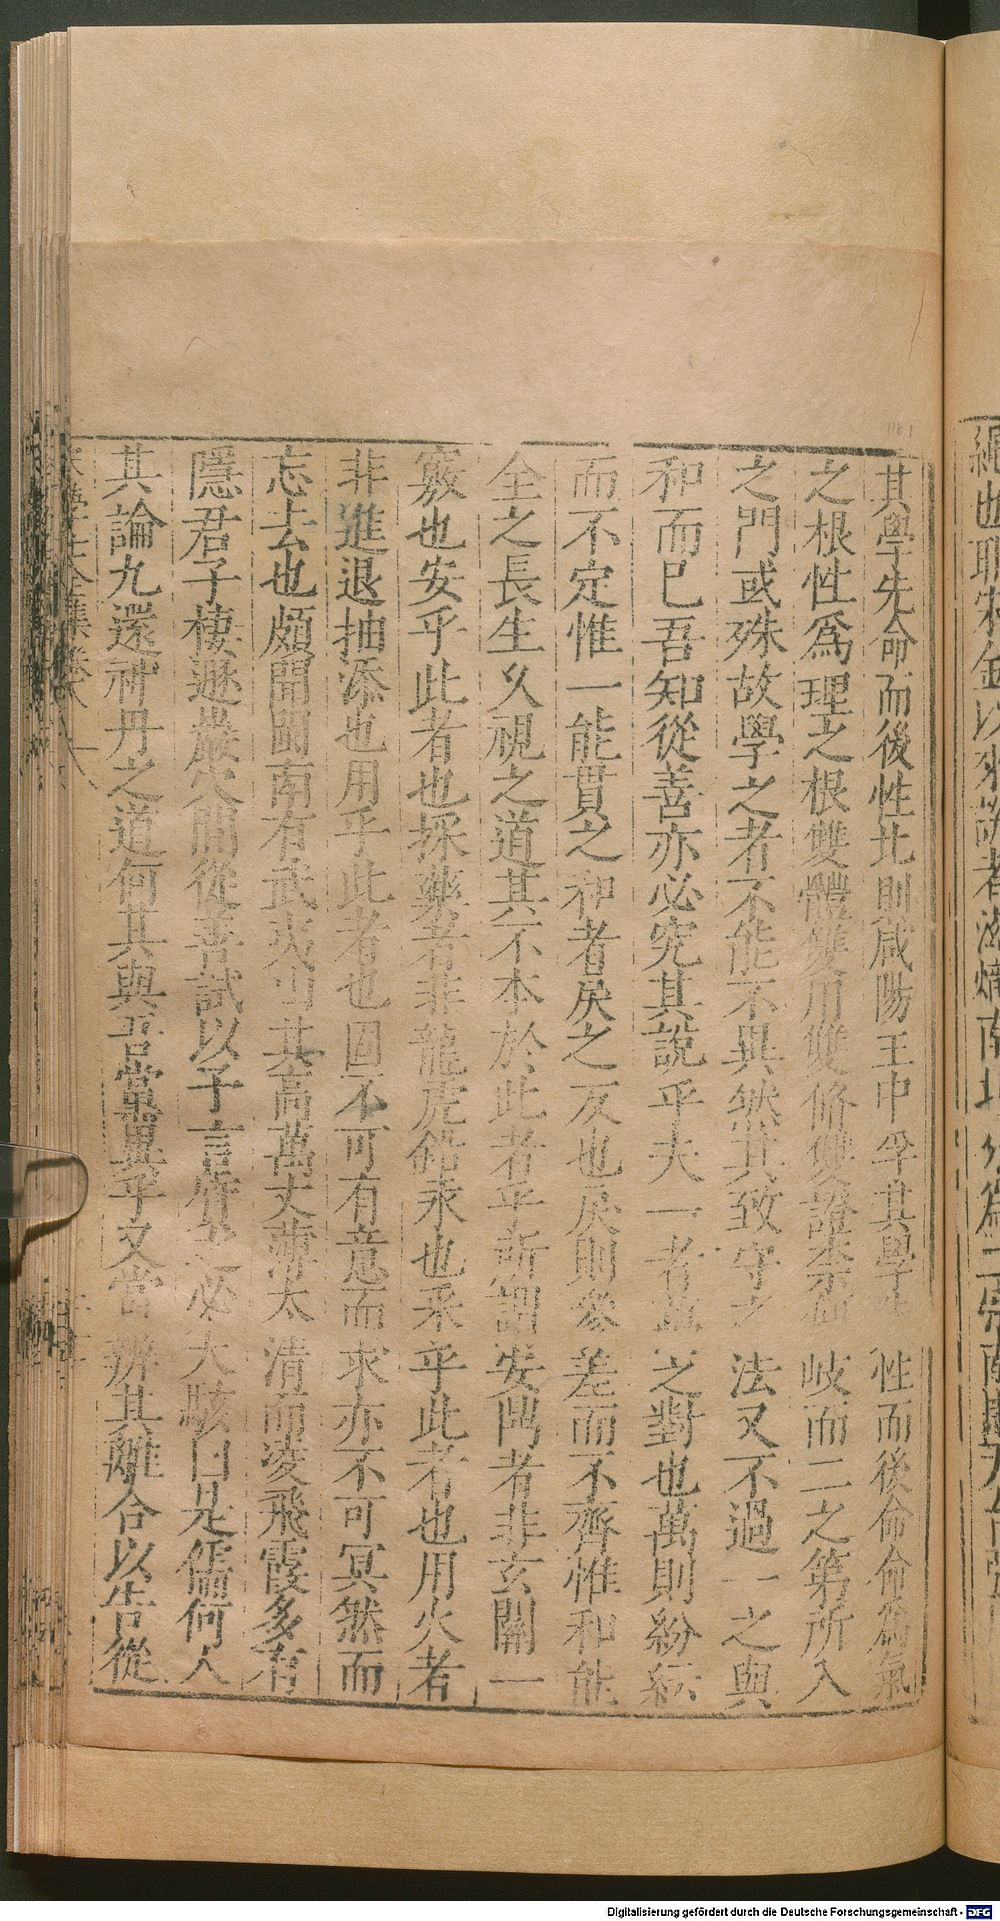 其學先命而後性北則咸陽王中孚其學先性而後命命爲氣
之根性爲理之根雙體雙用雙脩雙證奈何岐而二之第所入
之門或殊故學之者不能不異然其致守之法又不過一之與
和而已吾知從善亦必究其說乎夫一者萬之對也萬則紛紜
而不定惟一能貫之和者戾之反也戾則參差而不齊惟和能
全之長生久視之道其不本於此者乎所謂安門者非玄關一
竅也安乎此者也採藥者非龍虎鉛汞也采乎此者也用火者
非進退抽添也用乎此者也固不可有意而求亦不可冥然而
忘去也頗聞閩南有武夷山其高萬丈薄太清而凌飛霞多有
隱君子棲遯巖穴間從善試以予言質之必大駭曰是儒何人
其論九還神丹之道何其與吾黨異乎又當辨其離合以告從
宋學士全集卷八
繩也耶宋金以來說者滋熾南北分爲二宗南則天台張
Digitalisierung gefördert durch die Deutsche Forschungsgemeinschaft - DFG